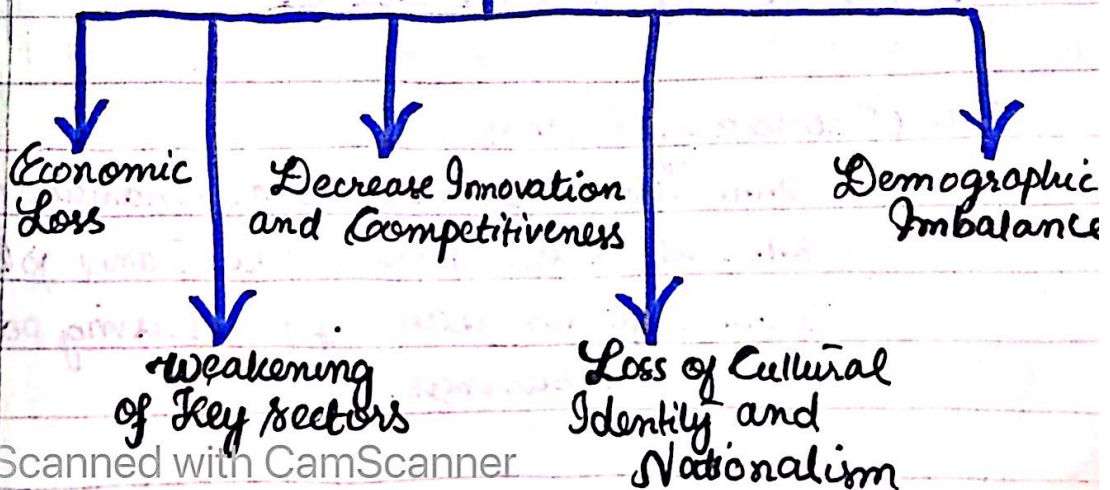 Economic
Loss
Decrease Innovation
and Competitiveness
Demographic
Imbalance
Weakening
of Key sectors
Loss of Cultural
Identity and
Nationalism
Scanned with CamScanner